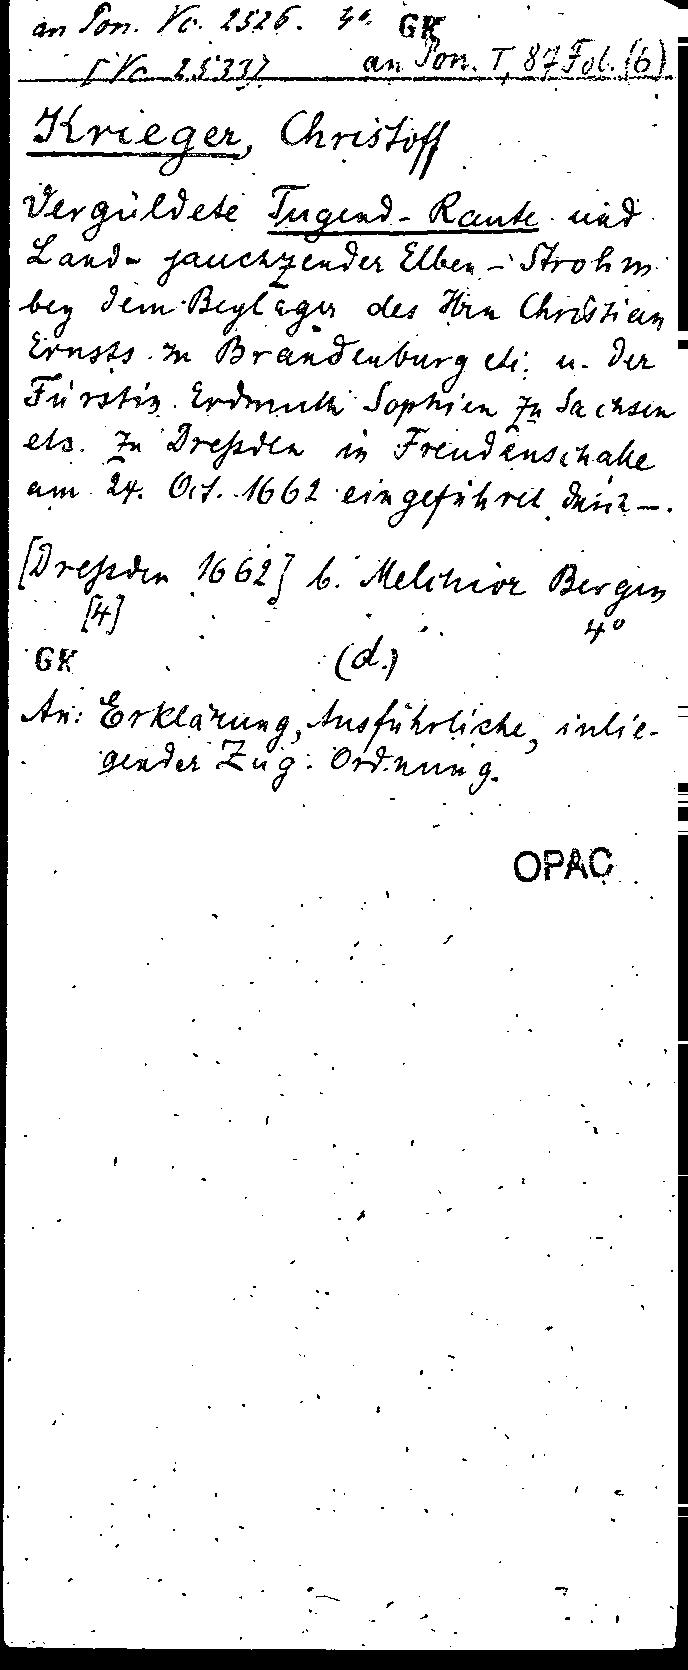 an Pon. Vc. 2526. 4°. GK
[Vc 2533] an Pon. T, 87 Fol. (6)
Krieger, Christoff
Vergüldete Tugend-Raute und
Land- jauchzender Elben-Strohm
bey dem Beylager des Hrn Christian
Ernsts zu Brandenburg etc. u. der
Fürstin Erdmuth Sophien zu Sachsen
etc. zu Dreßden in Freudenschalle
am 24. Oct. 1662 eingeführet durch —.
[Dreßden 1662] b. Melchior Bergen
[4] 4°
GK (d.)
An: Erklärung, Ausführliche, inlie-
gender Zug: Ordnung.
OPAC